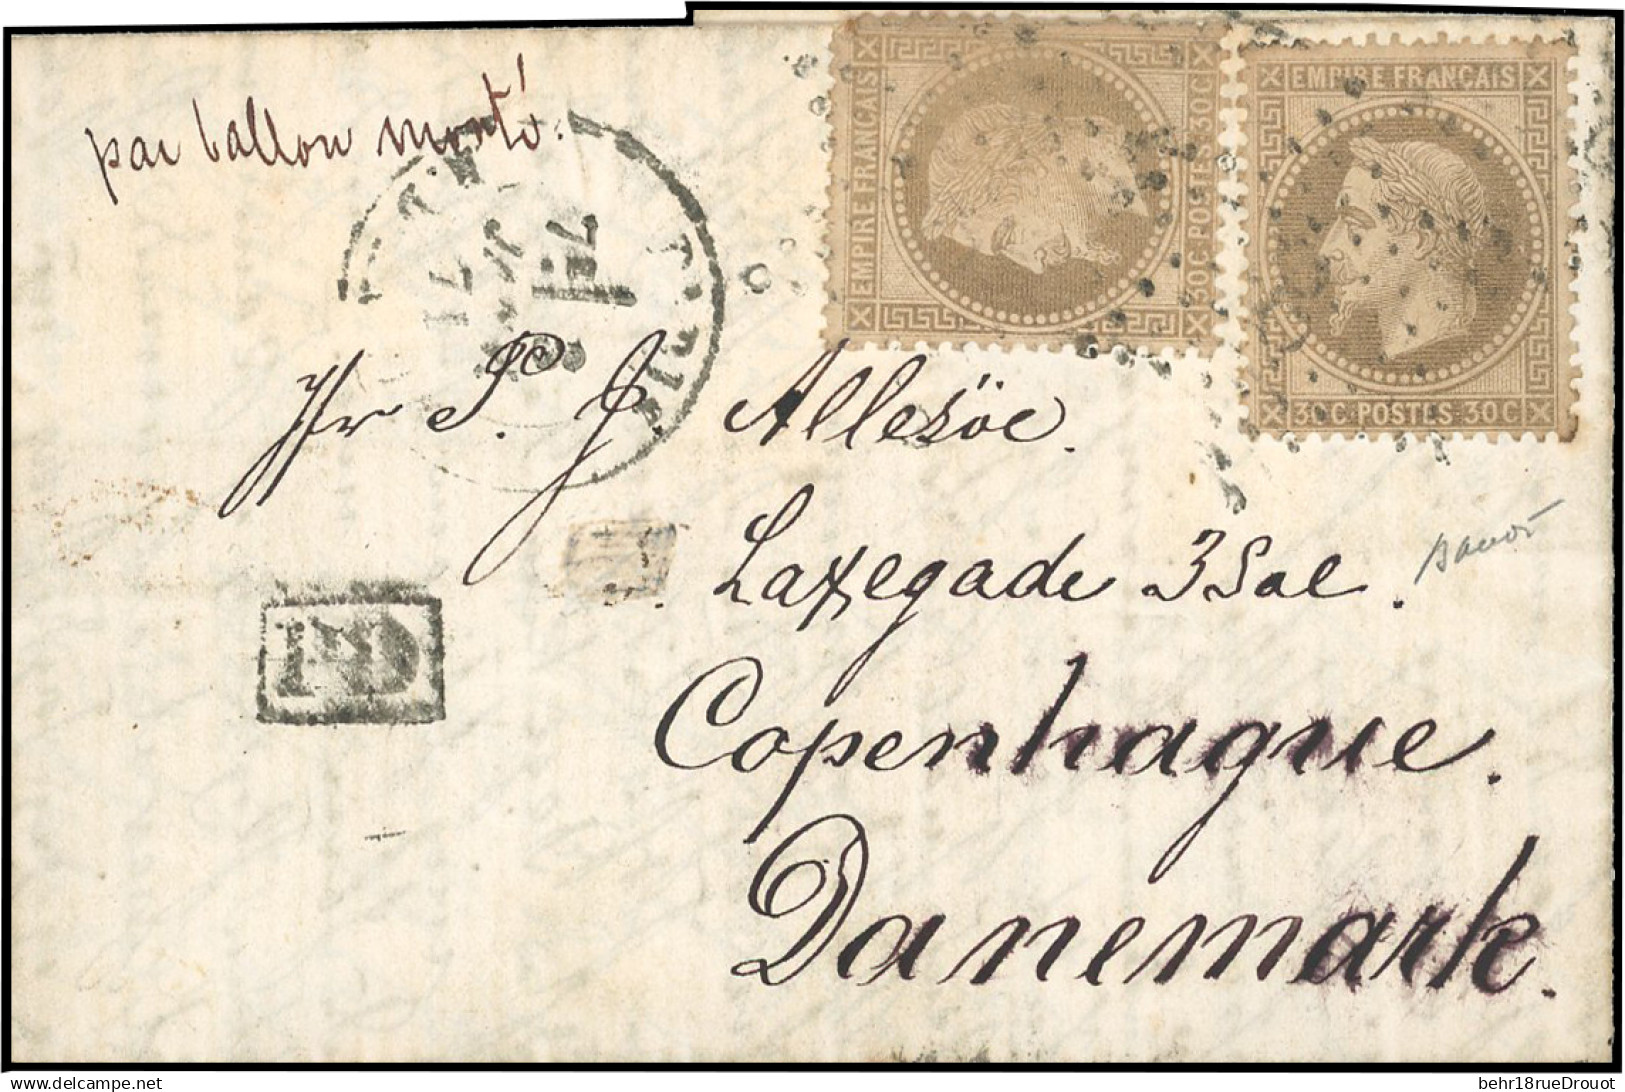 par ballon monté.
EMPIRE FRANÇAIS
30C POSTES 30C
EMPIRE FRANÇAIS
30C POSTES 30C
PARIS
71
Hr P. J. Allesöe.
Laxegade 3 Sal.
PD
Copenhague.
Danemark.
delcampe.net
behr18rueDrouot